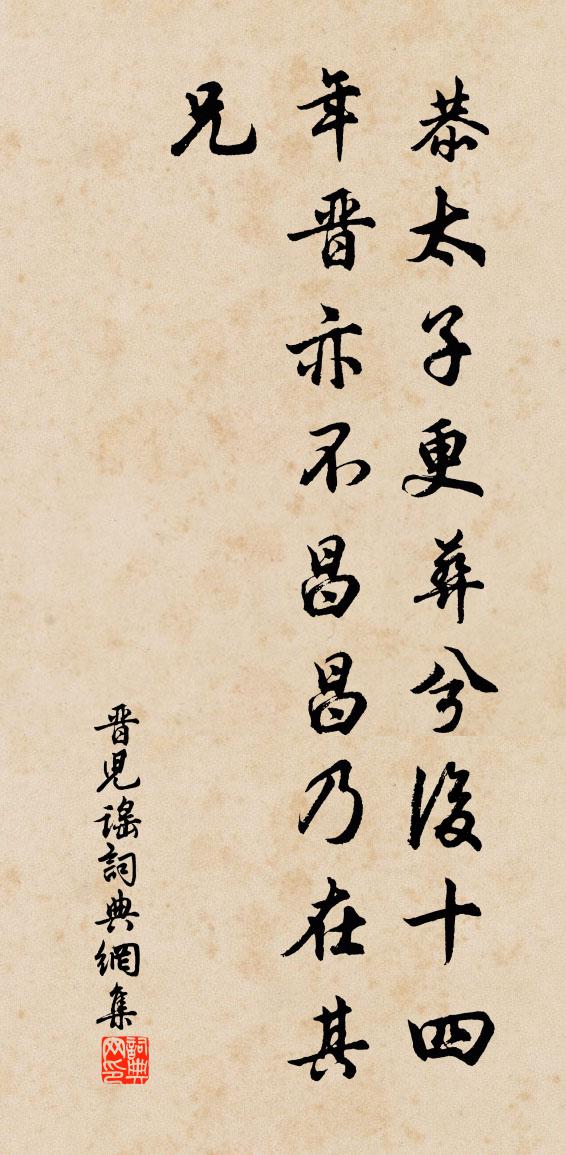 恭太子更葬兮後十四
年晋亦不昌昌乃在其
兄
晋児謡詞典網集
詞典网印